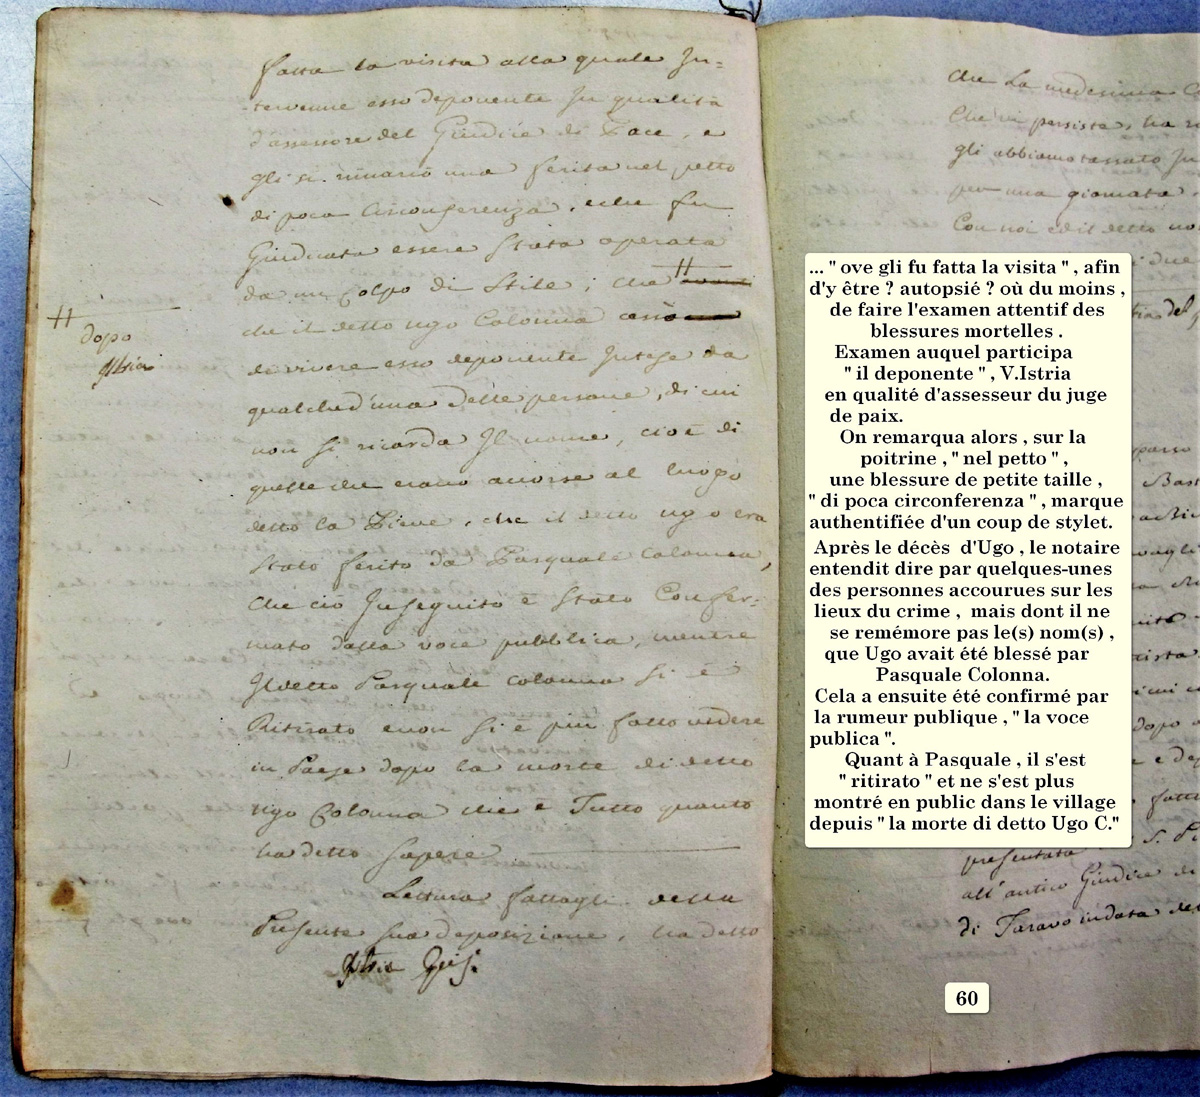 fatta la visita alla quale In=
tervenne esso deponente In qualità
d'assessore del Giudice di Pace, e
gli si rimarcò una ferita nel petto
di poca Circonferenza, e che fu
Giudicata essere Stata operata
da un Colpo di Stile; che #
che il detto ugo Colonna cessò
di vivere esso deponente Intese da
qualched'una delle persone, di cui
non si ricorda Il nome, cioè di
quelle che erano accorse al luogo
detto la Pieve, che il detto ugo era
Stato ferito da Pasquale Colonna,
che ciò In seguito è Stato Confer=
mato dalla voce pubblica, mentre
Il detto Pasquale Colonna Si è
Ritirato e non Si è più fatto vedere
in Paese dopo la morte di detto
ugo Colonna che è Tutto quanto
ha detto Sapere
Lettura fattagli della
Presente sua deposizione, ha detto
#
dopo
Istria
che La medesima
Che vi persiste, ha
gli abbiamo tassato
per una giornata
Con noi ed il detto
... " ove gli fu fatta la visita " , afin
d'y être ? autopsié ? où du moins ,
de faire l'examen attentif des
blessures mortelles .
Examen auquel participa
" il deponente " , V.Istria
en qualité d'assesseur du juge
de paix.
On remarqua alors , sur la
poitrine , " nel petto " ,
une blessure de petite taille ,
" di poca circonferenza " , marque
authentifiée d'un coup de stylet.
Après le décès d'Ugo , le notaire
entendit dire par quelques-unes
des personnes accourues sur les
lieux du crime , mais dont il ne
se remémore pas le(s) nom(s) ,
que Ugo avait été blessé par
Pasquale Colonna.
Cela a ensuite été confirmé par
la rumeur publique , " la voce
publica ".
Quant à Pasquale , il s'est
" ritirato " et ne s'est plus
montré en public dans le village
depuis " la morte di detto Ugo C."
presentata
all'antico Giudice di
di Taravo in data del
60